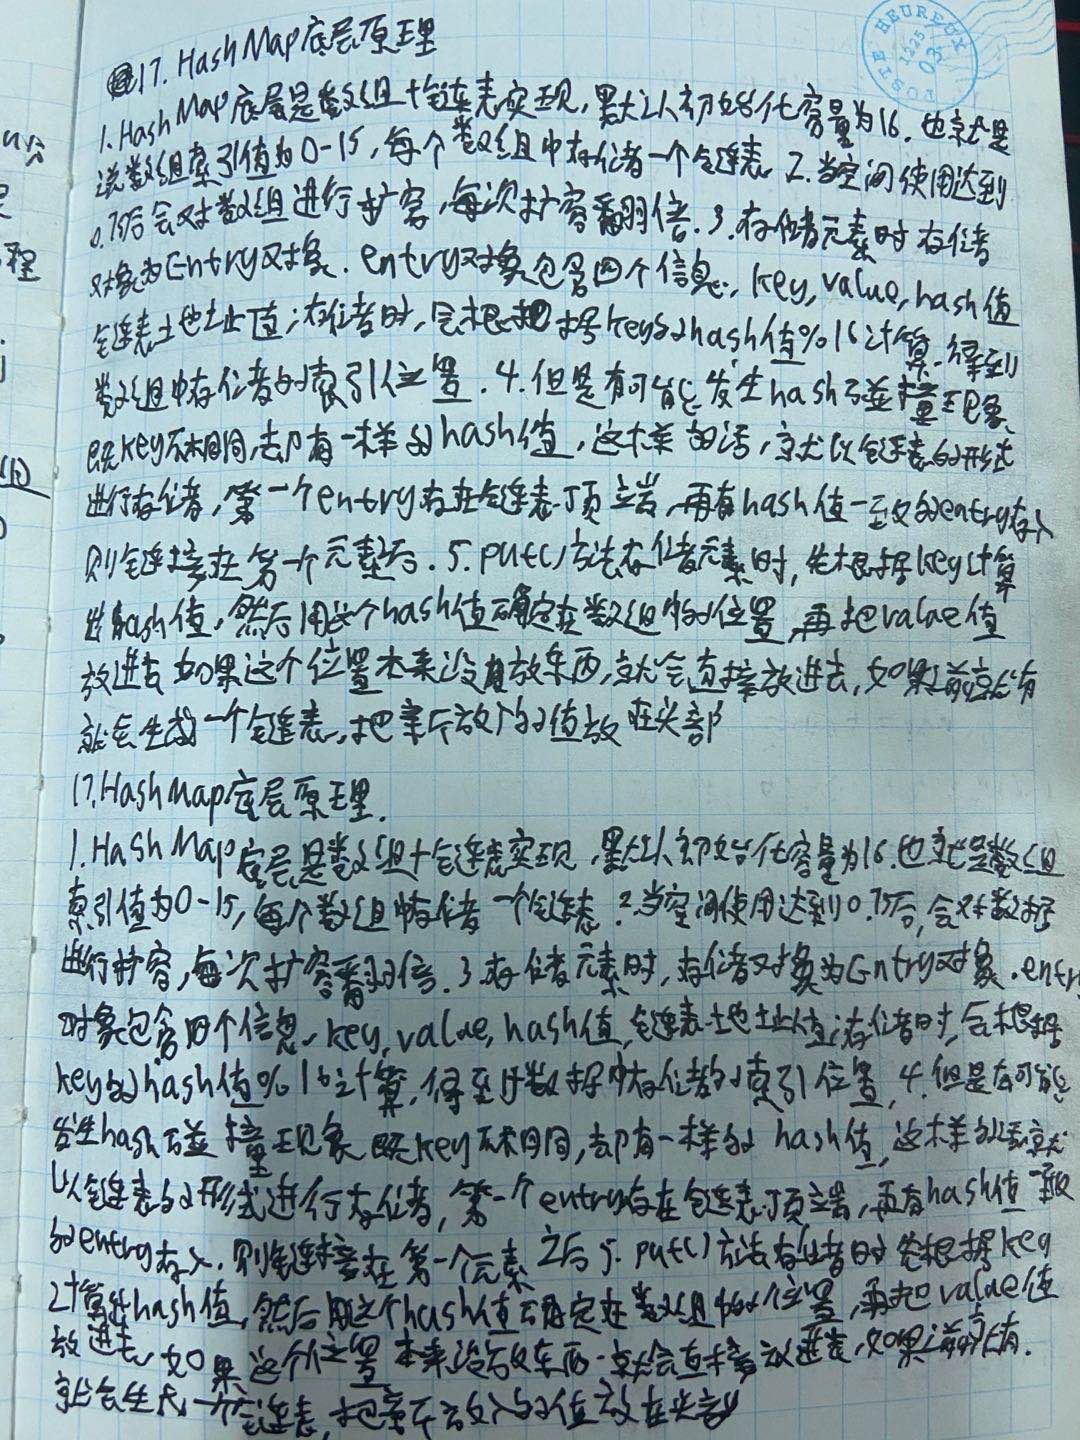 17. HashMap底层原理
1. HashMap底层是数组+链表实现,默认初始化容量为16.也就是
说数组索引值为0-15,每个数组中存储着一个链表 2.当空间使用达到
0.75后会对数组进行扩容,每次扩容翻倍.3.存储元素时存储
对象为Entry对象.entry对象包含四个信息,key,value,hash值
链表地址值;存储时,会根据key的hash值%16计算.得到
数组中存储的索引位置.4.但是有可能发生hash碰撞现象
既key不相同,却有一样的hash值,这样的话,就以链表的形式
进行存储,第一个entry存在链表顶端,再有hash值一致的entry存入
则链接在第一个元素后.5.put()方法存储元素时,先根据key计算
出hash值,然后用这个hash值确定在数组中的位置,再把value值
放进去 如果这个位置本来没有放东西,就会直接放进去,如果之前就有
就会生成一个链表,把新放入的值放在头部
17.HashMap底层原理.
1.HashMap底层是数组+链表实现,默认初始化容量为16.也就是数组
索引值为0-15,每个数组中存储一个链表.2.当空间使用达到0.75后,会对数据
进行扩容,每次扩容翻倍.3.存储元素时,存储对象为Entry对象.entry
对象包含四个信息,key,value,hash值,链表地址值;存储时,会根据
key的hash值%16计算,得到数据中存储的索引位置,4.但是有可能
发生hash碰撞现象 既key不相同,却有一样的hash值,这样的话就
以链表的形式进行存储,第一个entry存在链表顶端,再有hash值一致
的entry存入.则链接在第一个元素之后 5.put()方法存储时 先根据key
计算出hash值,然后用这个hash值确定在数组中的位置,再把value值
放进去,如果这个位置本来没放东西.就会直接放进去,如果之前就有.
就会生成一个链表,把新放入的值放在头部